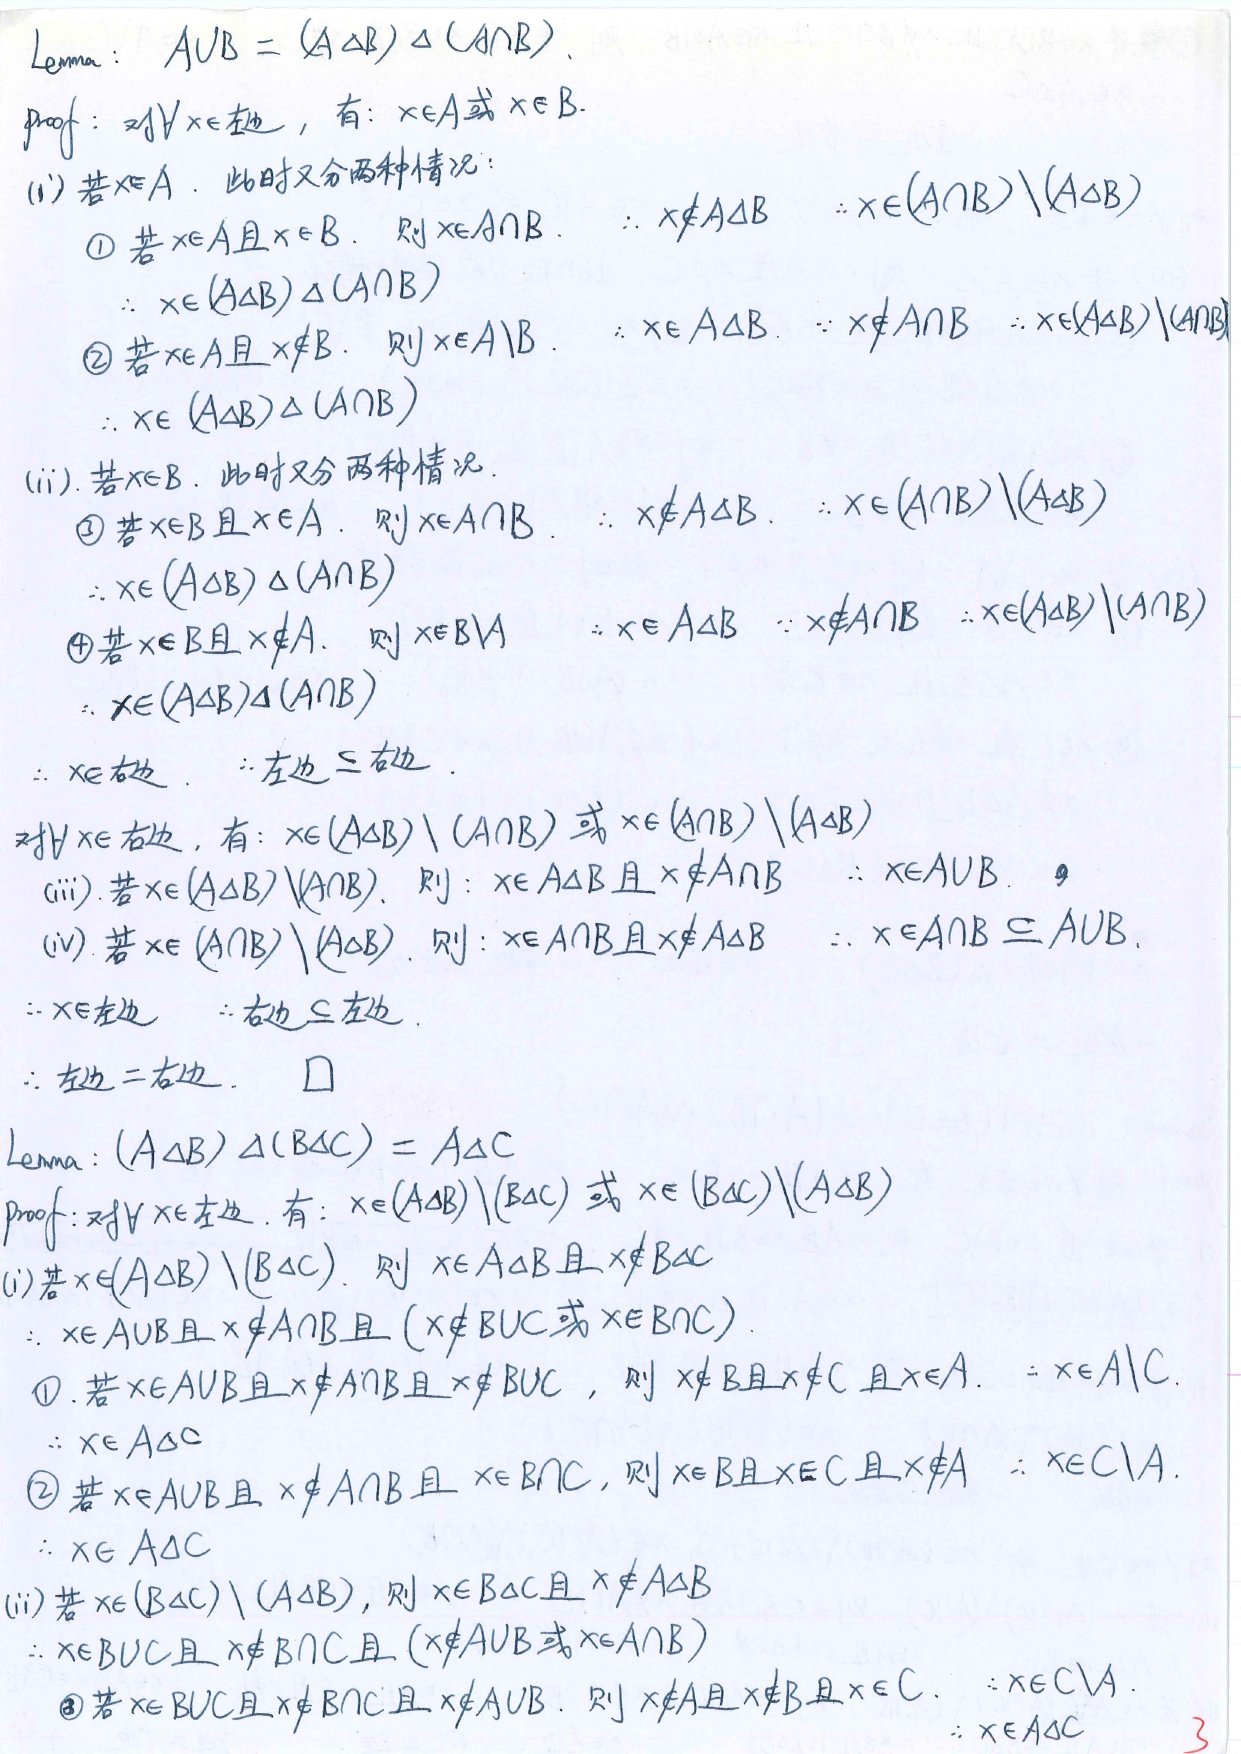 Lemma: A∪B = (A△B)△(A∩B).
Proof: 对∀x∈左边, 有: x∈A或x∈B.
(i) 若x∈A. 此时又分两种情况:
① 若x∈A且x∈B. 则x∈A∩B. ∴ x∉A△B ∴x∈(A∩B)\(A△B)
∴ x∈(A△B)△(A∩B)
② 若x∈A且x∉B. 则x∈A\B. ∴x∈A△B ∵x∉A∩B ∴x∈(A△B)\(A∩B)
∴ x∈(A△B)△(A∩B)
(ii). 若x∈B. 此时又分两种情况.
③ 若x∈B且x∈A. 则x∈A∩B. ∴ x∉A△B. ∴x∈(A∩B)\(A△B)
∴x∈(A△B)△(A∩B)
④ 若x∈B且x∉A. 则x∈B\A ∴x∈A△B ∵x∉A∩B ∴x∈(A△B)\(A∩B)
∴ x∈(A△B)△(A∩B)
∴ x∈右边. ∴左边⊆右边.
对∀x∈右边, 有: x∈(A△B)\(A∩B)或x∈(A∩B)\(A△B)
(iii). 若x∈(A△B)\(A∩B). 则: x∈A△B且x∉A∩B ∴x∈A∪B.
(iv). 若x∈(A∩B)\(A△B) 则: x∈A∩B且x∉A△B ∴x∈A∩B⊆A∪B.
∴x∈左边 ∴右边⊆左边.
∴左边=右边. □
Lemma: (A△B)△(B△C) = A△C
Proof: 对∀x∈左边. 有: x∈(A△B)\(B△C)或x∈(B△C)\(A△B)
(i) 若x∈(A△B)\(B△C). 则x∈A△B且x∉B△C
∴ x∈A∪B且x∉A∩B且(x∉B∪C或x∈B∩C).
①. 若x∈A∪B且x∉A∩B且x∉B∪C, 则x∉B且x∉C且x∈A. ∴x∈A\C.
∴ x∈A△C
② 若x∈A∪B且x∉A∩B且x∈B∩C, 则x∈B且x∈C且x∉A ∴x∈C\A.
∴ x∈A△C
(ii) 若x∈(B△C)\(A△B), 则x∈B△C且x∉A△B
∴x∈B∪C且x∉B∩C且(x∉A∪B或x∈A∩B)
③ 若x∈B∪C且x∉B∩C且x∉A∪B. 则x∉A且x∉B且x∈C. ∴x∈C\A.
∴ x∈A△C
3